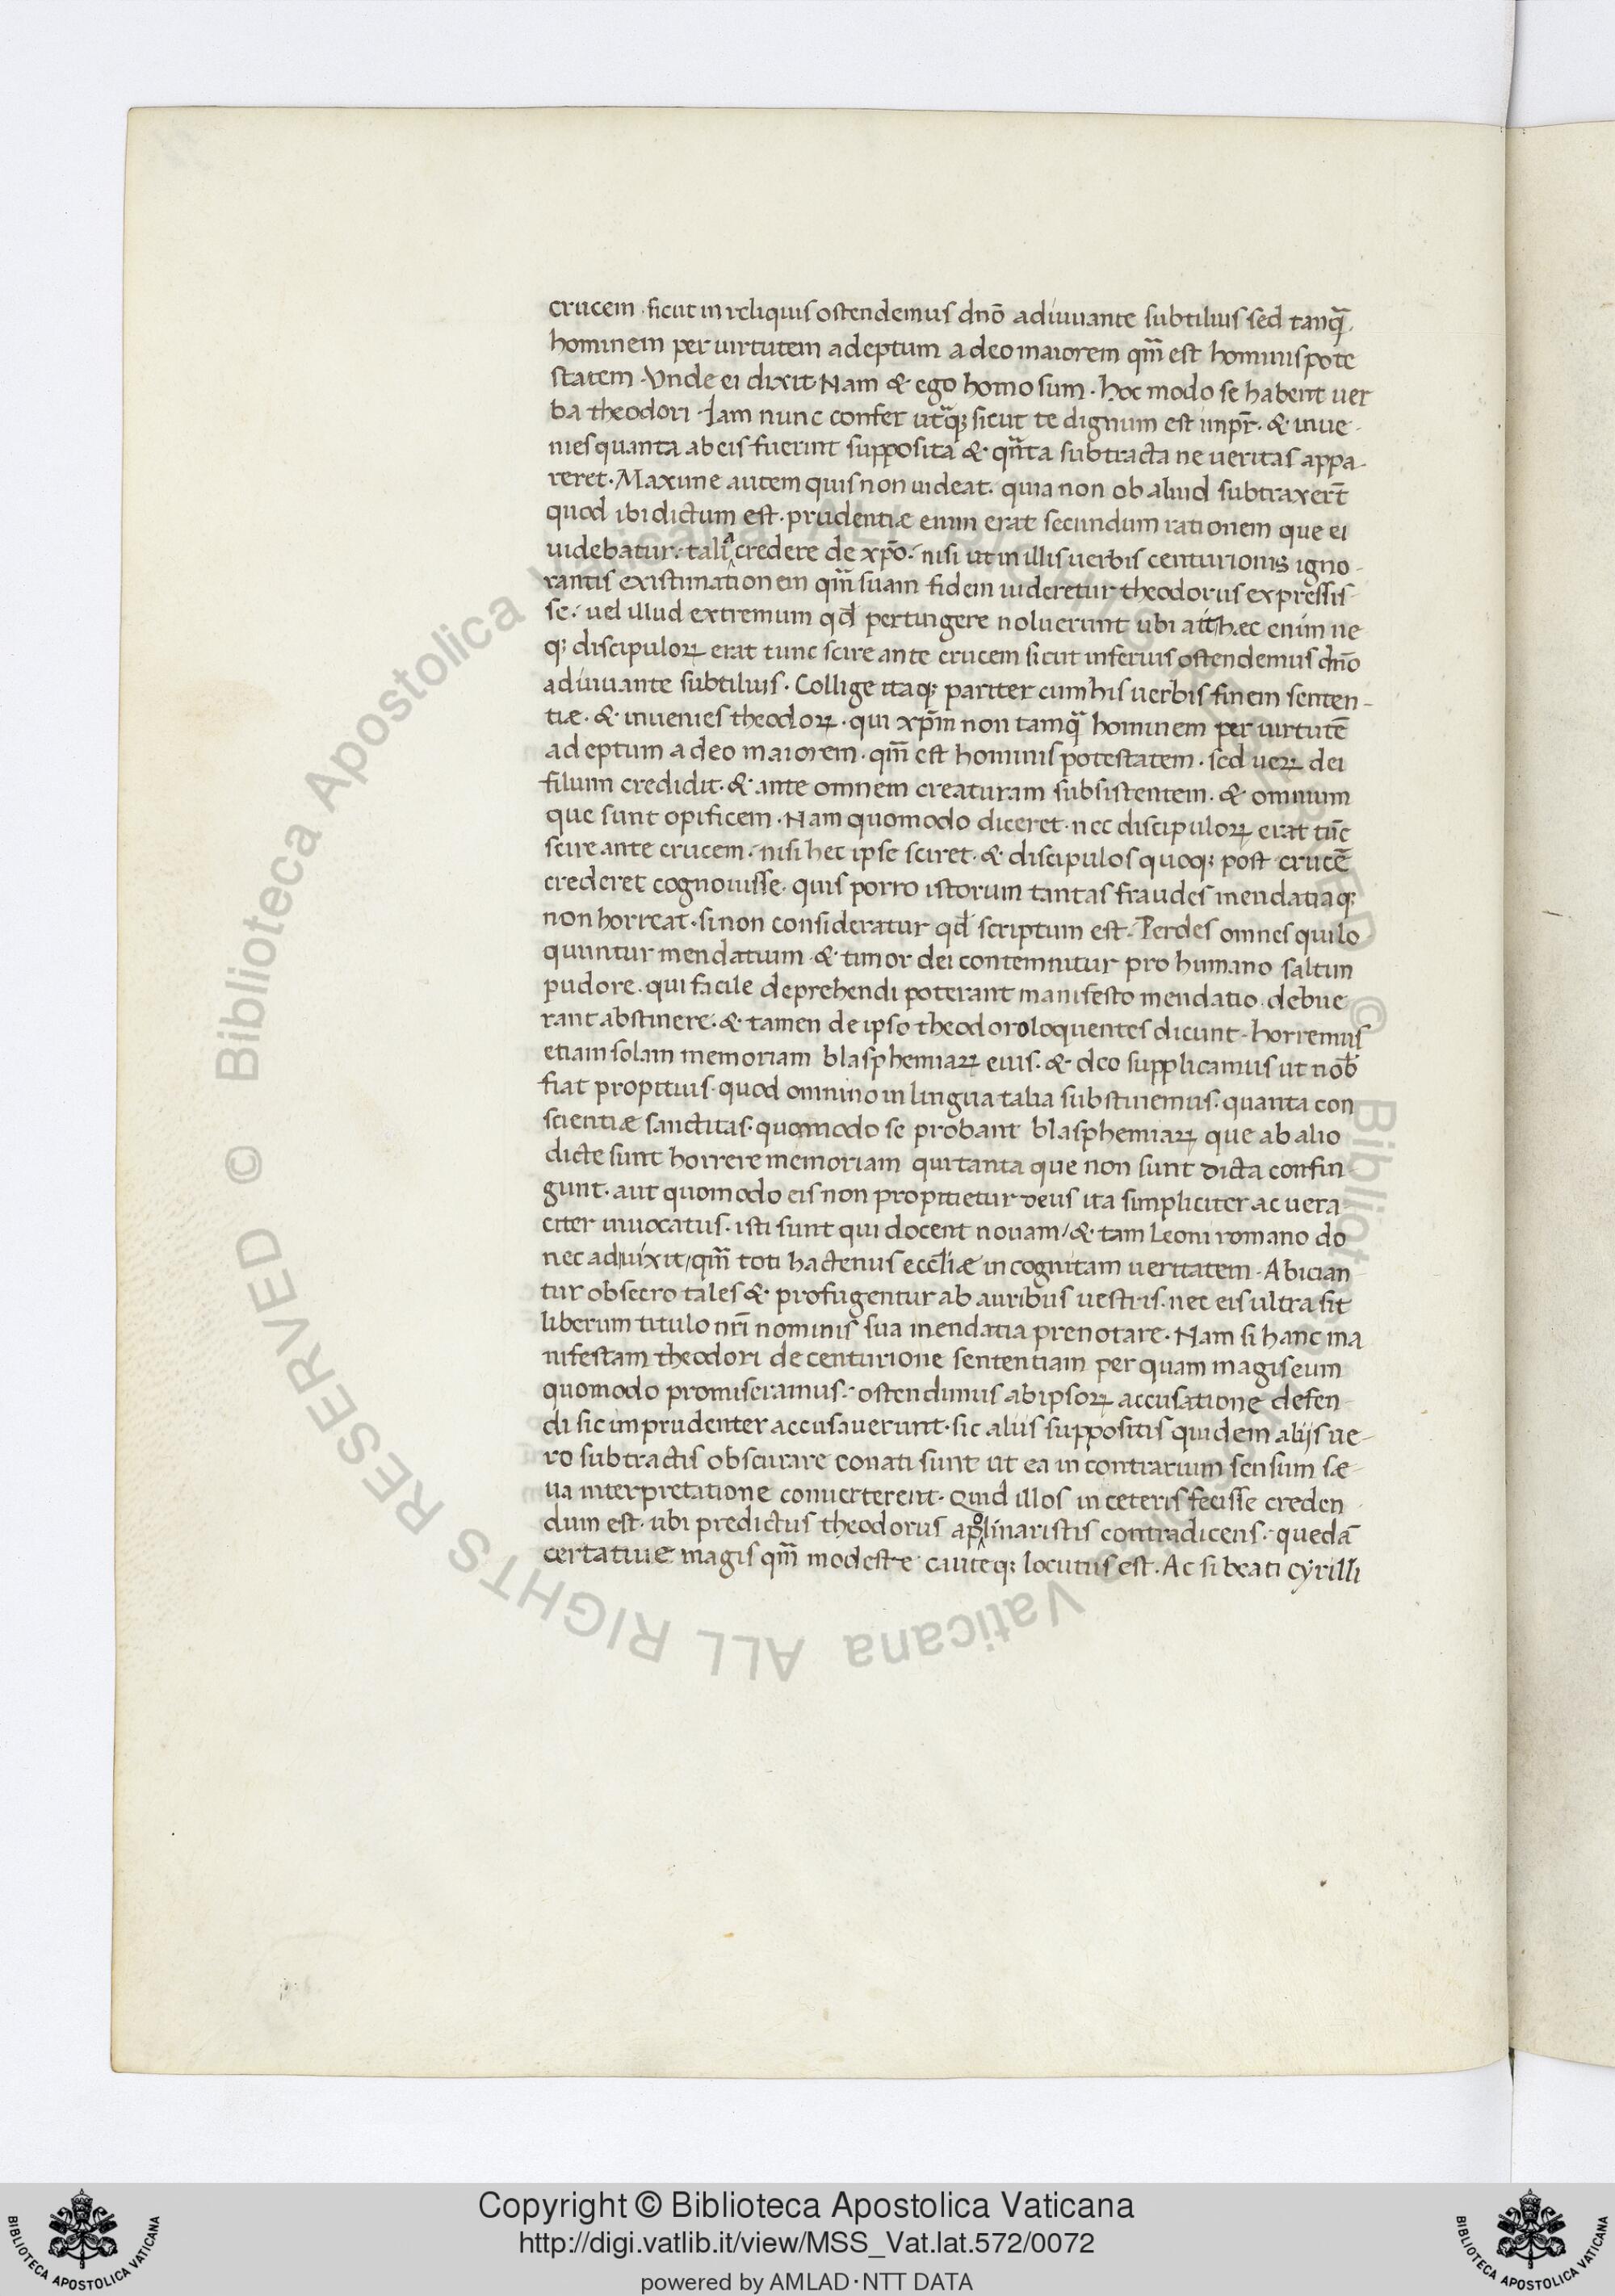 crucem · sicut in reliquis ostendemus dnō adiuuante subtilius sed tanq̄
hominem per uirtutem adeptum a deo maiorem qm̄ est hominis pote
statem · Vnde ei dixit · Nam & ego homo sum · hoc modo se habent uer
ba theodori · Iam nunc confer utraq; sicut te dignum est impr̄ · & inue-
nies quanta ab eis fuerint supposita & qn̄ta subtracta ne ueritas appa-
reret · Maxime autem quis non uideat · quia non ob aliud subtraxert̄
quod ibi dictum est · prudentiæ enim erat secundum rationem que ei
uidebatur · talia credere de xp̄o · nisi ut in illis uerbis centurionis igno-
rantis existimationem qm̄ suam fidem uideretur theodorus expressis-
se · uel illud extremum qd̄ pertingere noluerunt ubi ait hec enim ne
q; discipuloꝝ erat tunc scire ante crucem sicut inferius ostendemus dn̄o
adiuuante subtilius · Collige itaq; pariter cum his uerbis finem senten-
tiæ · & inuenies theodoꝝ · qui xp̄m non tamq̄ hominem per uirtutē
adeptum a deo maiorem · qm̄ est hominis potestatem · sed ueꝝ dei
filium credidit · & ante omnem creaturam subsistentem · & omnium
que sunt opificem · Nam quomodo diceret · nec discipuloꝝ erat tūc
scire ante crucem · nisi hec ipse sciret · & discipulos quoq; post crucē
crederet cognouisse · quis porro istorum tantas fraudes mendatiaq;
non horreat · si non consideratur qd̄ scriptum est · Perdes omnes qui lo
quuntur mendatium & timor dei contemnitur pro humano saltim
pudore · qui facile deprehendi poterant manifesto mendatio · debue
rant abstinere · & tamen de ipso theodoro loquentes dicunt · horremus
etiam solam memoriam blasphemiaꝝ eius · & deo supplicamus ut nob̄
fiat propitius · quod omnino in lingua talia substinemus · quanta con
scientiæ sanctitas · quomodo se probant blasphemiaꝝ que ab alio
dicte sunt horrere memoriam qui tanta que non sunt dicta confin
gunt · aut quomodo eis non propitietur deus ita simpliciter ac uera
citer inuocatus · isti sunt qui docent nouam / & tam Leoni romano do
nec aduixit / qm̄ toti hactenus eccl̄iæ incognitam ueritatem · Abician
tur obsecro tales & profugentur ab auribus uestris · nec eis ultra sit
liberum titulo nr̄i nominis sua mendatia prenotare · Nam si hanc ma
nifestam theodori de centurione sententiam per quam magis eum
quomodo promiseramus · ostendimus ab ipsoꝝ accusatione defen
di sic imprudenter accusauerunt · sic aliis suppositis quidem alijs ue-
ro subtractis obscurare conati sunt ut ea in contrarium sensum sæ-
ua interpretatione conuerterent · Quid illos in ceteris fecisse creden
dum est · ubi predictus theodorus apolinaristis contradicens · quedā
certatiue magis qm̄ modeste cauteq; locutus est · Ac si beati cyrilli
Copyright © Biblioteca Apostolica Vaticana
http://digi.vatlib.it/view/MSS_Vat.lat.572/0072
powered by AMLAD · NTT DATA